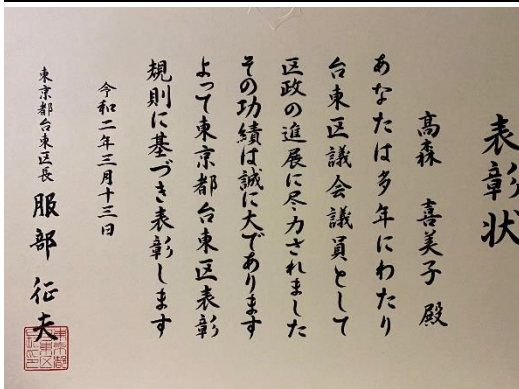 表彰状
髙森 喜美子 殿
あなたは多年にわたり
台東区議会議員として
区政の進展に尽力されました
その功績は誠に大であります
よって東京都台東区表彰
規則に基づき表彰します
令和二年三月十三日
東京都台東区長 服部 征夫